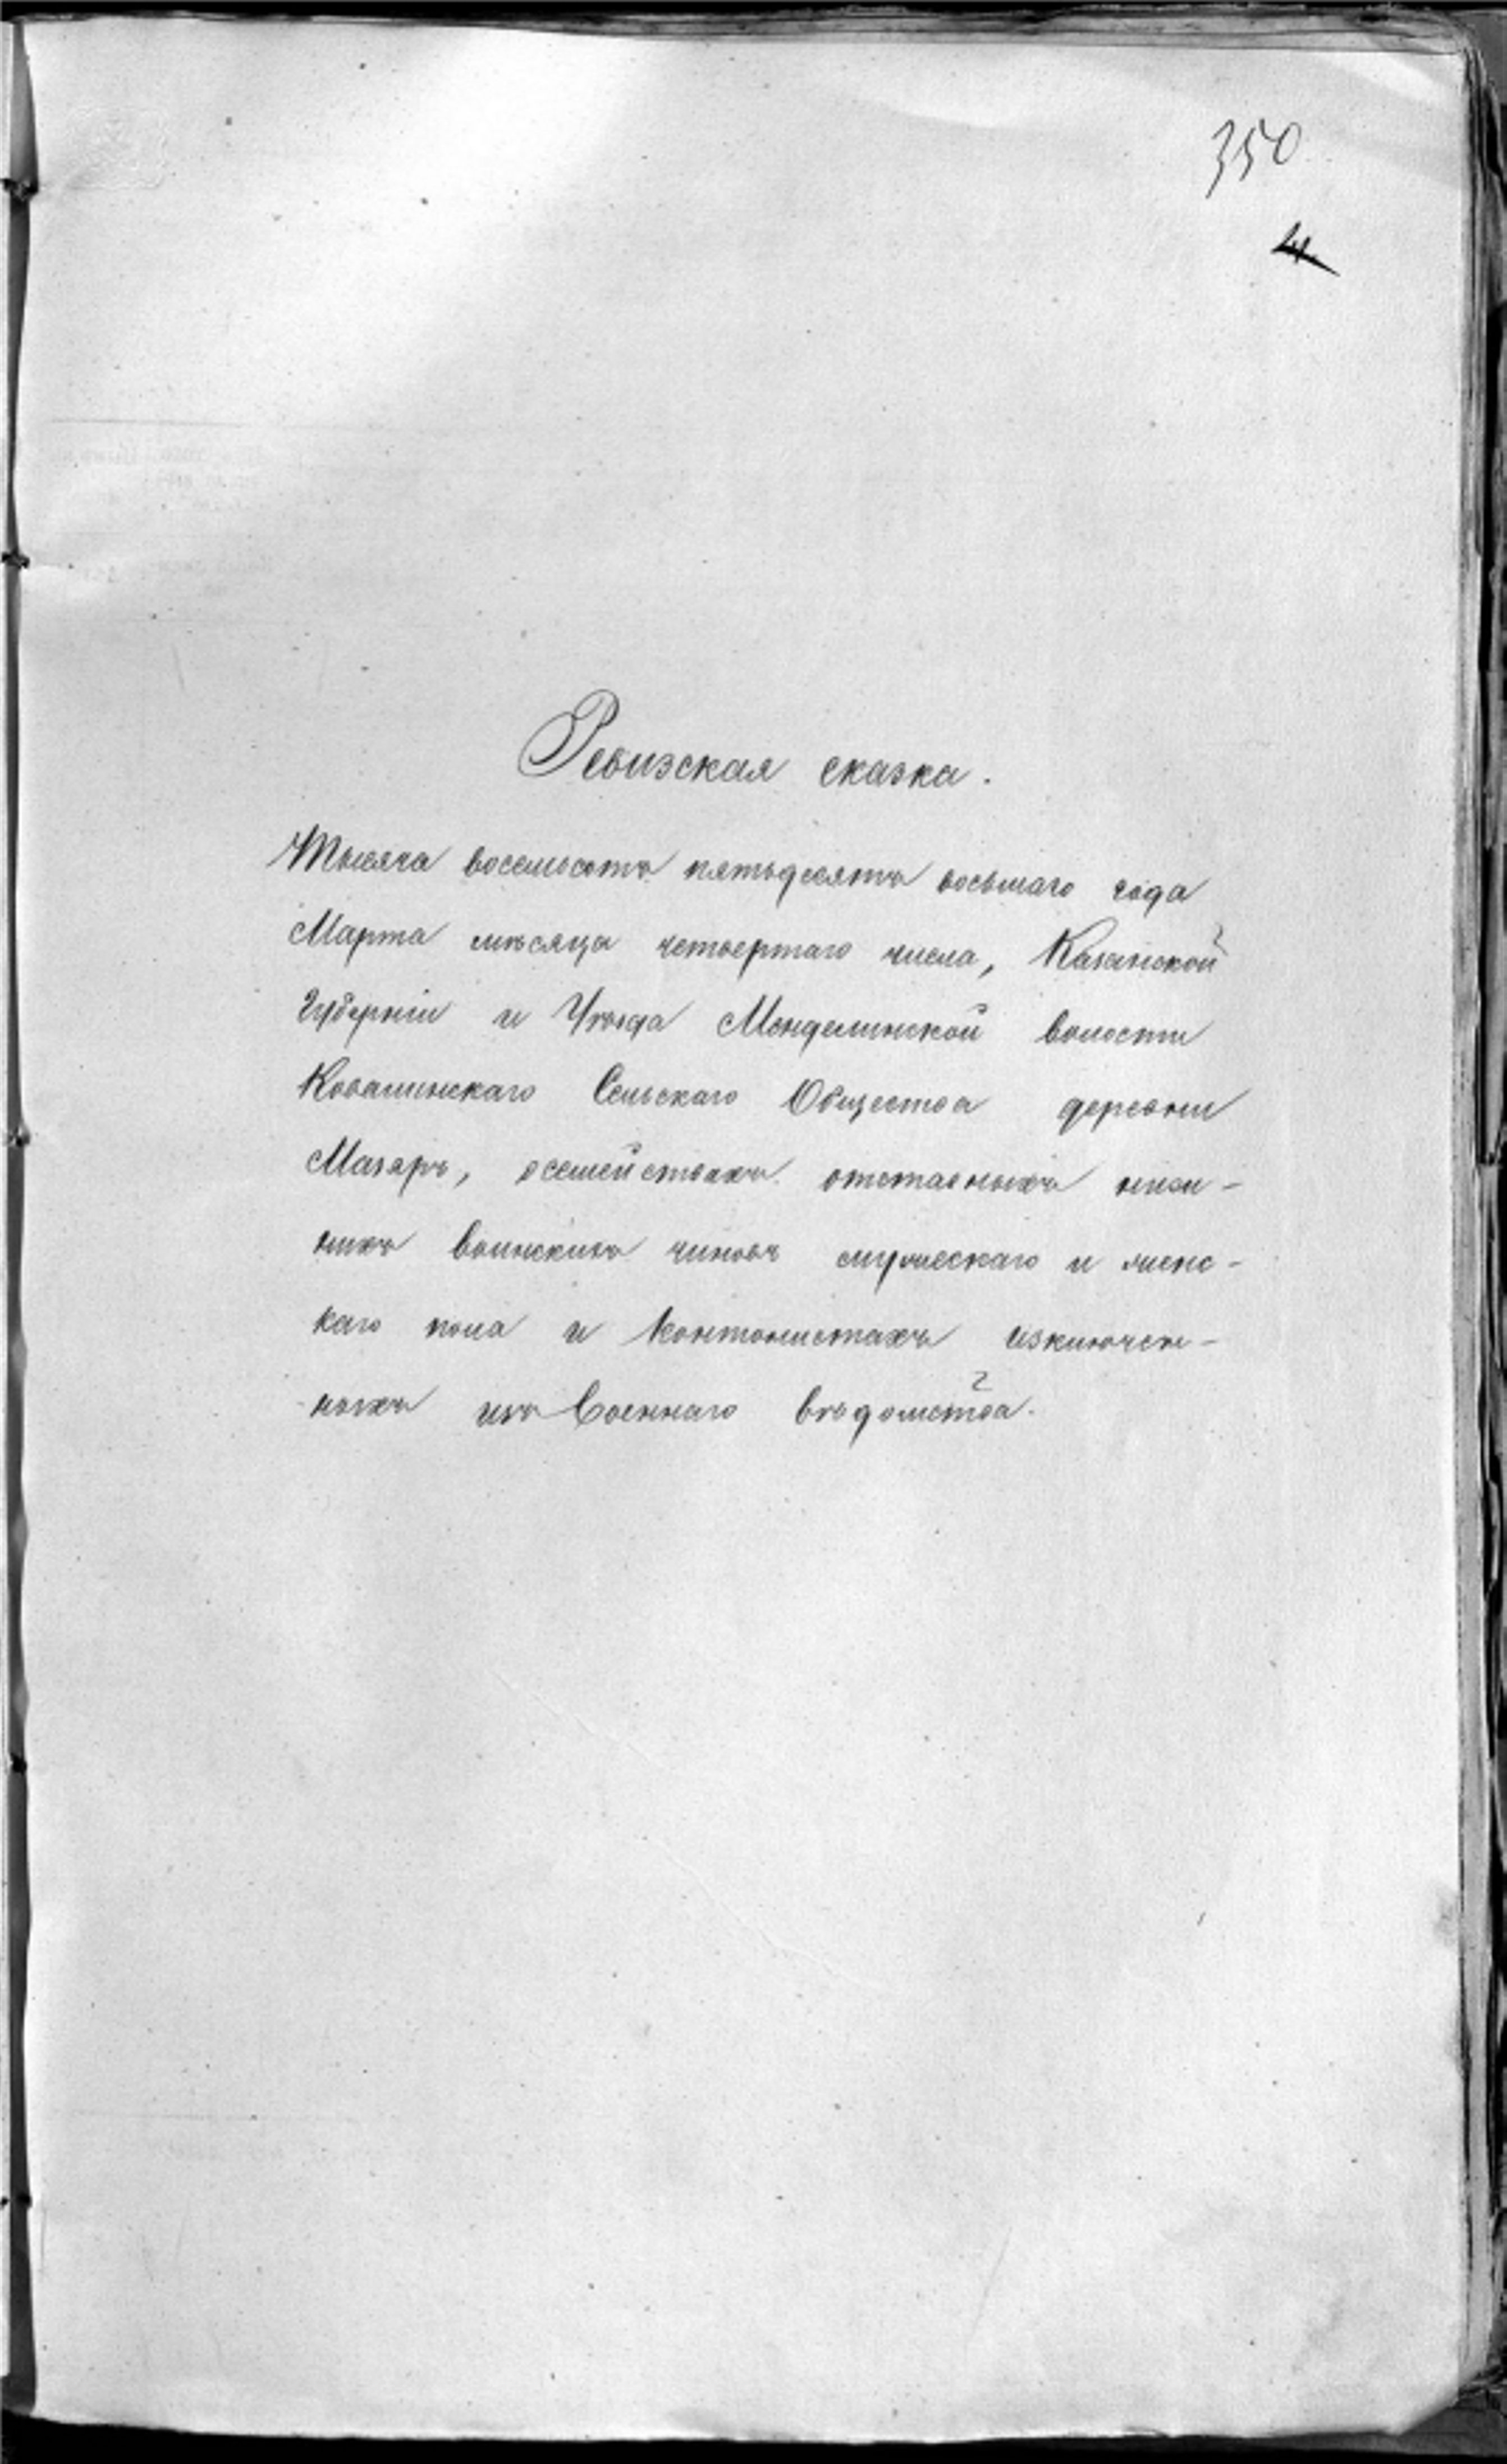 350
4
Ревизская сказка.
Тысяча восемьсотъ пятьдесятъ восьмаго года
Марта мѣсяца четвертаго числа, Казанской
Губерніи и Уѣзда Менделинской волости
Ковалинскаго Сельскаго Общества деревни
Мазаръ, осемействахъ отставныхъ ниж-
нихъ воинскихъ чиновъ мужескаго и женс-
каго пола и Контонистахъ изключен-
ныхъ изъ Военнаго вѣдомства.